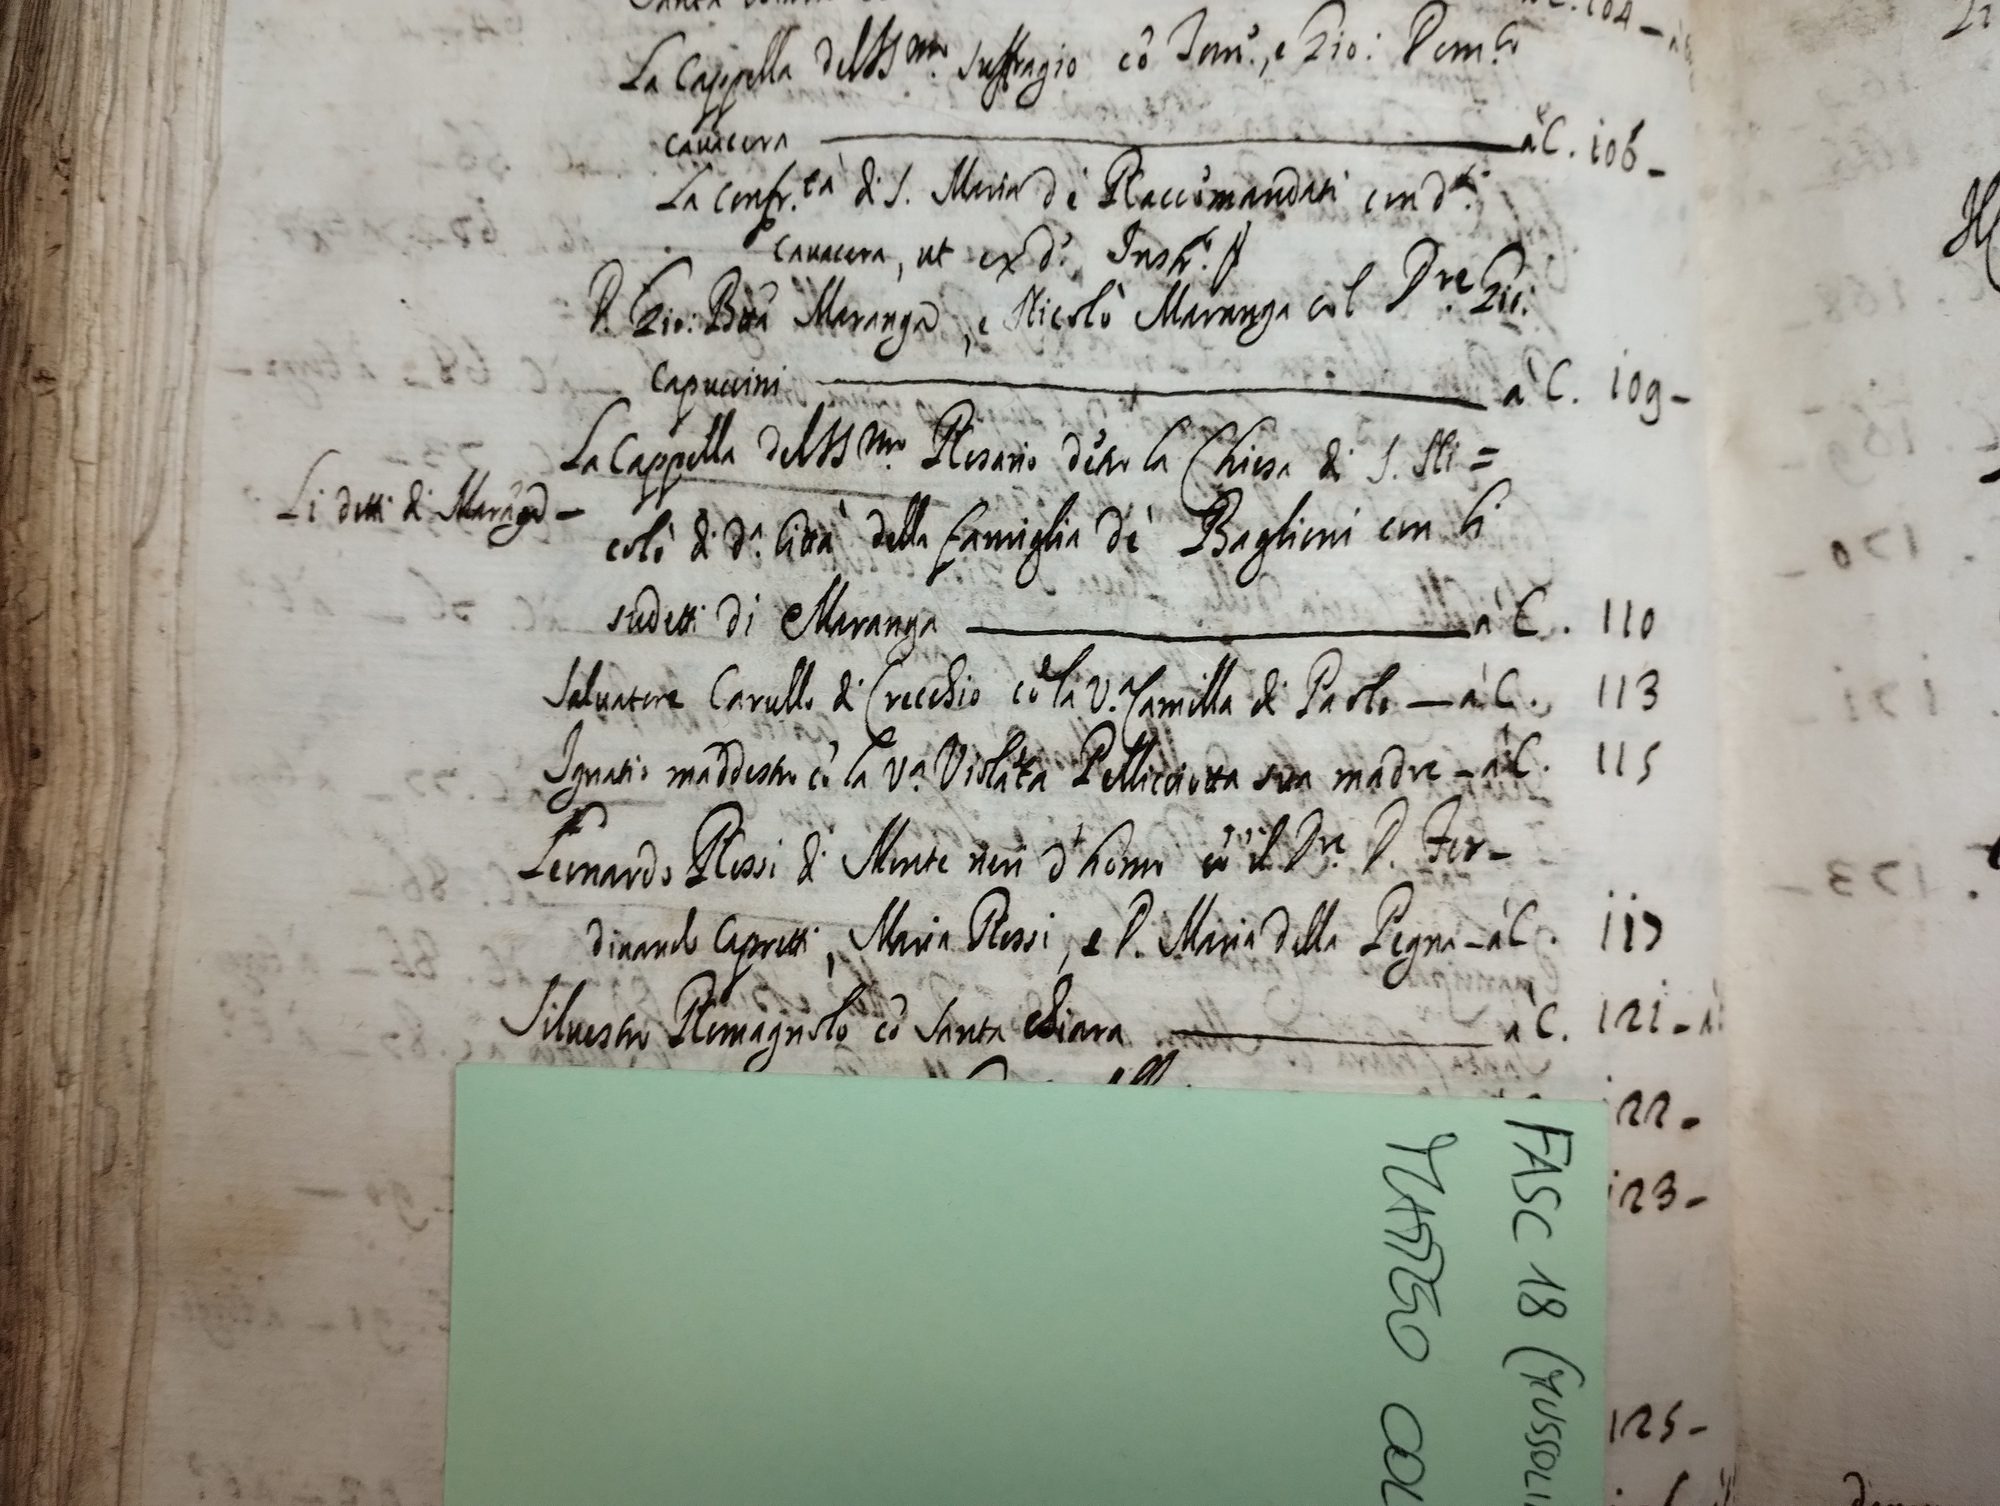 à C. 104 -
La Cappella del SSmo. Suffragio cō Tom.o, e Gio: Dom.co
Cauacera à C. 106 -
La Confr.tà di S. Maria dè Raccōmandati con d.i
Cauacera, ut ex d.o Instr.o
D. Gio: Btta Maranga, e Nicolò Maranga col Pre Gio:
Capuccini à C. 109 -
La Cappella del SSmo. Rosario dētro la Chiesa di S. Ni=
Li detti di Marāga -
colò di d.a Città della famiglia dè Baglioni con li
sudetti di Maranga à C. 110
Saluatore Carullo di Crecchio cō la V.a Camilla di Paolo - à C. 113
Ignatio maddestro cō la V.a Violāta Pellicciotta sua madre - à C. 115
Leonardo Rossi di Monte neri d'homo cō il Dr. D. Fer-
dinando Capretti, Maria Rossi, e D. Maria della Pegna - à C. 117
Siluestro Romagnolo cō Santa Chiara à C. 121 - à
122 -
123 -
125 -
FASC 18 (MUSSOLI
MATTEO COL